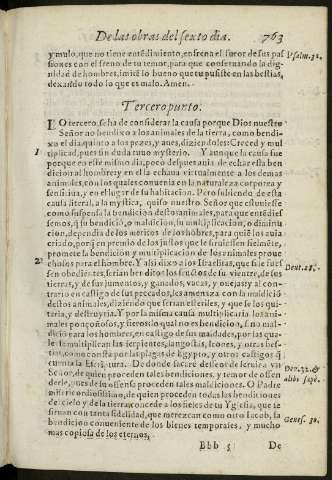 De las obras del sexto dia. 763
y mulo, que no tiene entẽdimiento, enfrena el furor de sus pas
siones con el freno de tu temor, para que conseruando la dig-
nidad de hombres, imitẽ lo bueno que tu pusiste en las bestias,
dexando todo lo que es malo. Amen.
Psalm. 31.
Tercero punto.
LO tercero, se ha de considerar la causa porque Dios nuestro
Señor no bendixo a los animales de la tierra, como bendi-
xo el dia quinto a los pezes, y aues, diziendoles: Creced y mul
tiplicad, pues sin duda tuuo mysterio. Y aunque la causa fue
1
porque en este mismo dia, poco despues auia de echar esta ben
dicion al hombre, y en el la echaua virtualmente a los demas
animales, con los quales conuenia en la naturaleza corporea y
sensitiua, y en el lugar de su habitacion. Pero subiendo de esta
causa literal, a la mystica, quiso nuestro Señor que estuuiesse
como suspensa la bendicion destos animales, para que entẽdies
semos, q̃ su bendiciõ, o maldicion, su multiplicacion, o diminu
cion, dependia de los meritos de los hõbres, para quiẽ los auia
criado, porq̃ en premio de los justos que le siruiessen fielmẽte,
promete la bendicion y multiplicacion de los animales proue
2
chosos para el hombre. Y assi dixo a los Israelitas, que si le fues
sen obedientes, serian benditos los frutos de su vientre, de sus
Deut. 28.
tierras, y de sus jumentos, y ganados, vacas, y ouejas: y al con-
trario en castigo de sus pecados, les amenaza con la maldiciõ
destos animales, diziendo que seran esteriles, y que se los qui-
taria, y destruyria. Y por la misma causa multiplicaria los ani-
males ponçoñosos, y fieros, los quales no bendixo,
dicio para los hombres, en castigo de sus maldades, por las qua-
les se multiplicauan las serpientes, langostas, leones, y otras bes-
tias, como consta por las plagas de Egypto, y otros castigos q̃
cuenta la Escriptura. De donde sacare desseos de seruir a vn
Señor, de quien proceden tales bendiciones, y temor de ofen
derle, pues de su ofensa proceden tales maldiciones. O Padre
Deu. 32. &
alibi sæpe.
misericordiosissimo, de quien proceden todas las bendiciones
de cielo y de la tierra, concede a los fieles de tu Yglesia, que te
siruan con tanta fidelidad, que merezcan como otro Iacob, la
Genes. 30.
bendicion conueniente de los bienes temporales, y mucho
mas copiosa de los eternos.
Bbb 5 De